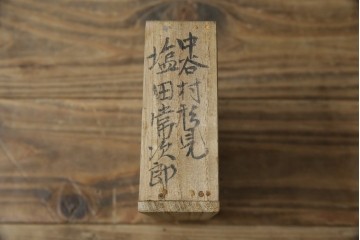 中谷村形見
塩田常次郎